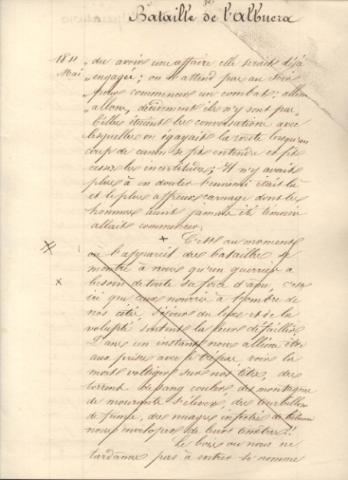 Bataille de l'Albuera
1811 „ du avoir une affaire elle serait déjà
Mai „ engagée; on n'attend pas au soir
„ pour commencer un combat; allons
„ allons, décidément ils n'y sont pas"
Telles étaient les conversations avec
lesquelles on égayait la route lorsqu'un
coup de canon se fit entendre et fit
cesser les incertitudes; Il n'y avait
plus à en douter l'ennemi était là
et le plus affreux carnage dont les
hommes aient jamais été témoin
allait commencer.
C'est au moment
où l'appareil des batailles se
montre à nous qu'un guerrier a
besoin de toute sa force d'âme, c'est
ici que nourris à l'ombre de
nos cités, séjours du luxe et de la
volupté
Dans un instant nous allions être
aux prises avec voir la
mort voltiger sur nos têtes, des
torrents de sang couler, des montagnes
de mourants s'élever, des tourbillons
de fumée, des nuages de bitume
nous envelopper de leurs ténèbres!
Le bois où nous ne
tardâmes pas à entrer se nomme